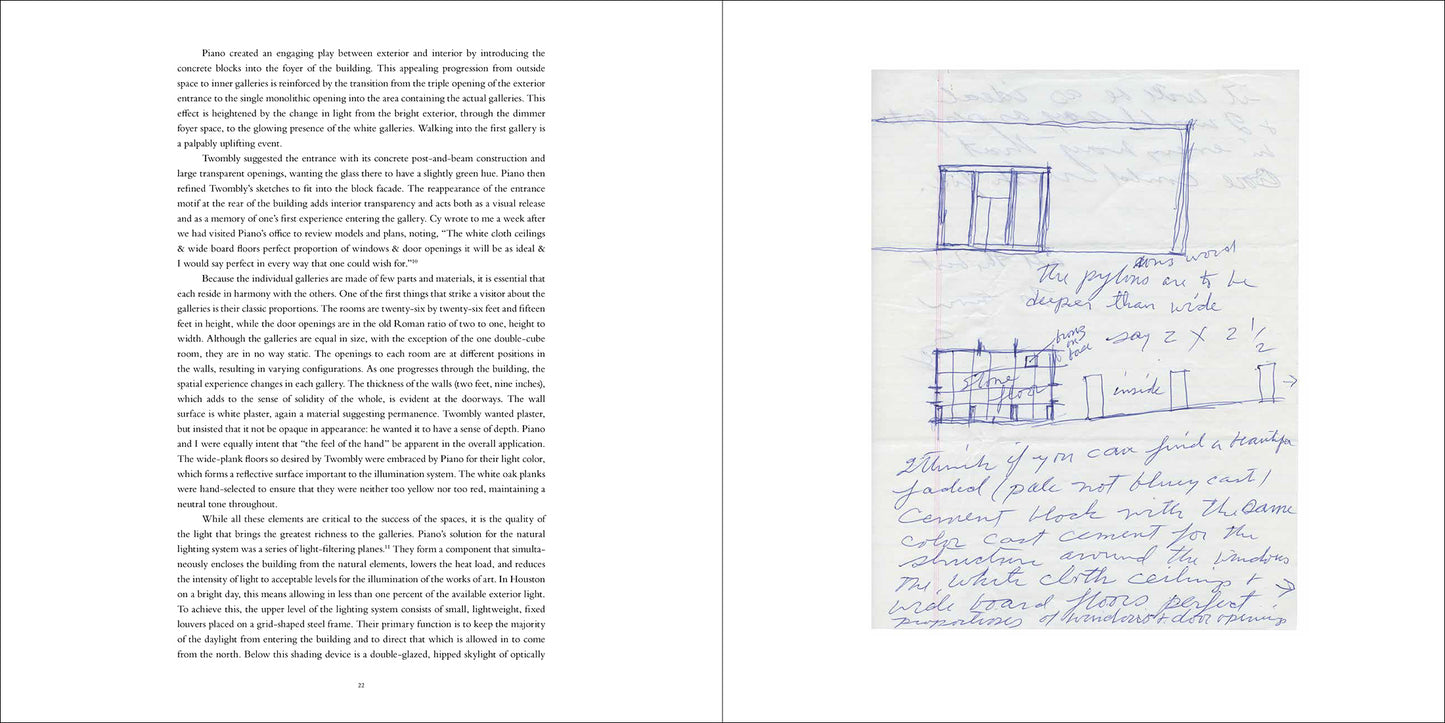 Piano created an engaging play between exterior and interior by introducing the
concrete blocks into the foyer of the building. This appealing progression from outside
space to inner galleries is reinforced by the transition from the triple opening of the exterior
entrance to the single monolithic opening into the area containing the actual galleries. This
effect is heightened by the change in light from the bright exterior, through the dimmer
foyer space, to the glowing presence of the white galleries. Walking into the first gallery is
a palpably uplifting event.
Twombly suggested the entrance with its concrete post-and-beam construction and
large transparent openings, wanting the glass there to have a slightly green hue. Piano then
refined Twombly’s sketches to fit into the block facade. The reappearance of the entrance
motif at the rear of the building adds interior transparency and acts both as a visual release
and as a memory of one’s first experience entering the gallery. Cy wrote to me a week after
we had visited Piano’s office to review models and plans, noting, “The white cloth ceilings
& wide board floors perfect proportion of windows & door openings it will be as ideal &
I would say perfect in every way that one could wish for.”¹⁰
Because the individual galleries are made of few parts and materials, it is essential that
each reside in harmony with the others. One of the first things that strike a visitor about the
galleries is their classic proportions. The rooms are twenty-six by twenty-six feet and fifteen
feet in height, while the door openings are in the old Roman ratio of two to one, height to
width. Although the galleries are equal in size, with the exception of the one double-cube
room, they are in no way static. The openings to each room are at different positions in
the walls, resulting in varying configurations. As one progresses through the building, the
spatial experience changes in each gallery. The thickness of the walls (two feet, nine inches),
which adds to the sense of solidity of the whole, is evident at the doorways. The wall
surface is white plaster, again a material suggesting permanence. Twombly wanted plaster,
but insisted that it not be opaque in appearance: he wanted it to have a sense of depth. Piano
and I were equally intent that “the feel of the hand” be apparent in the overall application.
The wide-plank floors so desired by Twombly were embraced by Piano for their light color,
which forms a reflective surface important to the illumination system. The white oak planks
were hand-selected to ensure that they were neither too yellow nor too red, maintaining a
neutral tone throughout.
While all these elements are critical to the success of the spaces, it is the quality of
the light that brings the greatest richness to the galleries. Piano’s solution for the natural
lighting system was a series of light-filtering planes.¹¹ They form a component that simulta-
neously encloses the building from the natural elements, lowers the heat load, and reduces
the intensity of light to acceptable levels for the illumination of the works of art. In Houston
on a bright day, this means allowing in less than one percent of the available exterior light.
To achieve this, the upper level of the lighting system consists of small, lightweight, fixed
louvers placed on a grid-shaped steel frame. Their primary function is to keep the majority
of the daylight from entering the building and to direct that which is allowed in to come
from the north. Below this shading device is a double-glazed, hipped skylight of optically
22
word
The pylons are to be
deeper than wide
say 2 X 2 1/2
stone
floor
inside
I think if you can find a beautiful
faded (pale not bluey cast)
cement block with the same
color cast cement for the
structure around the windows
The white cloth ceilings +
wide board floors perfect
proportions of windows + door openings